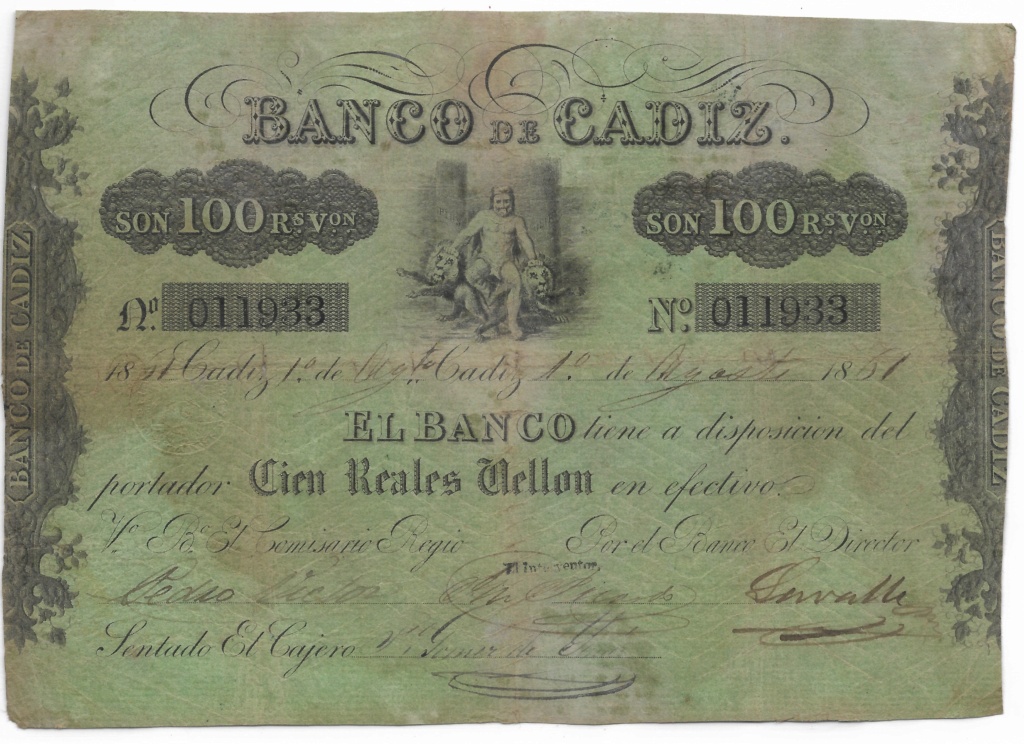 BANCO DE CADIZ.
SON 100 Rs Von SON 100 Rs Von
Nº. 011933 Nº. 011933
Cadiz 1º. de Agto. Cadiz 1º. de Agosto 1851
EL BANCO tiene a disposicion del
portador Cien Reales Vellon en efectivo.
Vº. Bº. El Comisario Regio Por el Banco El Director
El Interventor,
Pedro Victor
Sentado El Cajero Gomez de
BANCO DE CADIZ
BANCO DE CADIZ